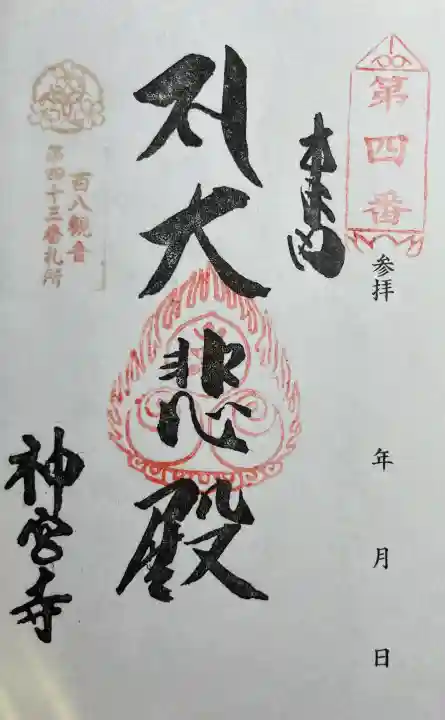 第四番
参拝
年
月
日
大悲殿
百八観音
第四十三番札所
神宮寺